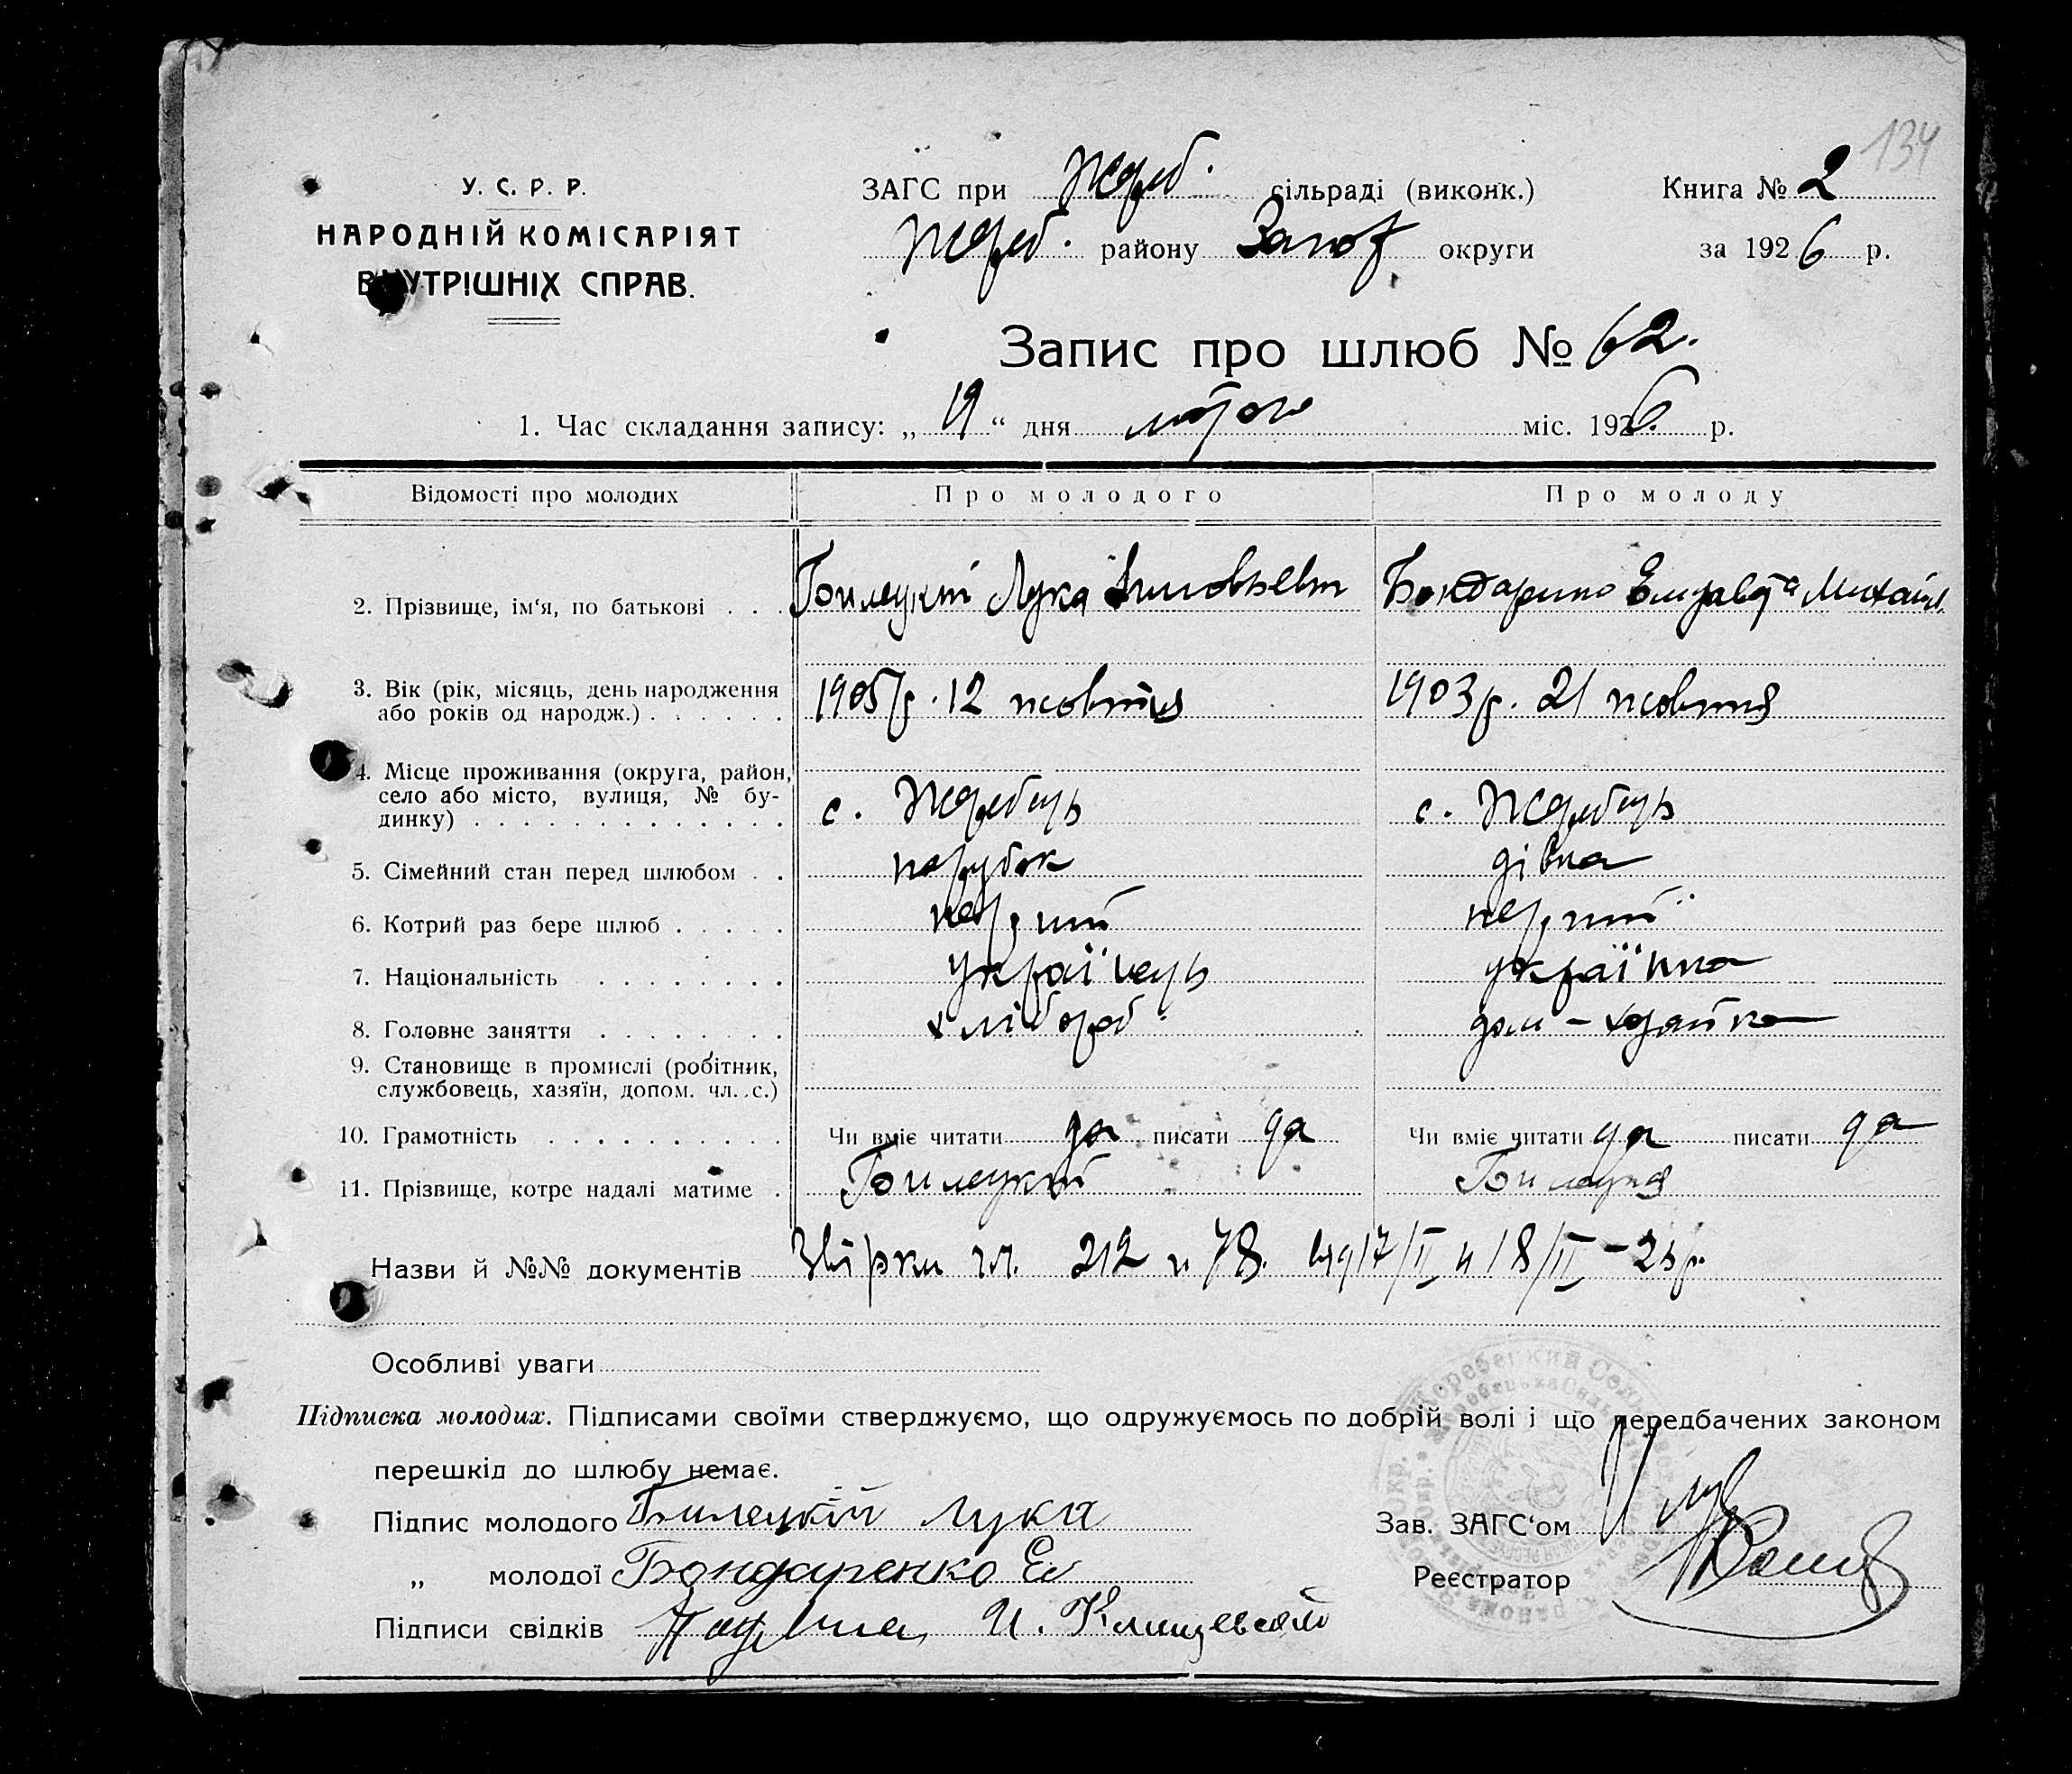 134
У. С. Р. Р.
НАРОДНІЙ КОМІСАРІЯТ
ВНУТРІШНІХ СПРАВ.
ЗАГС при Жереб. сільраді (виконк.)
Книга № 2
Жереб. району Запор округи
за 1926 р.
Запис про шлюб № 62.
1. Час складання запису: „ 19 “ дня лютого міс. 1926 р.
Відомості про молодих
Про молодого
Про молоду
2. Прізвище, ім‘я, по батькові . . .
Билецкий Лука
Бондаренко Елизавета Михайл.
3. Вік (рік, місяць, день народження
або років од народж.) . . . . . .
1905 р. 12 жовтня
1903 р. 21 жовтня
4. Місце проживання (округа, район,
село або місто, вулиця, № бу-
динку) . . . . . . . . . . . . .
с. Жеребець
с. Жеребець
5. Сімейний стан перед шлюбом . .
парубок
дівка
6. Котрий раз бере шлюб . . . . .
перший
перший
7. Національність . . . . . . . .
українець
українка
8. Головне заняття . . . . . . .
хлібороб
дом - хозяйка
9. Становище в промислі (робітник,
службовець, хазяїн, допом. чл. с.)
10. Грамотність . . . . . . . . . .
Чи вміє читати да писати да
Чи вміє читати да писати да
11. Прізвище, котре надалі матиме .
Билецкий
Билецкая
Назви й №№ документів 212 и 78. 17/II и 18/II - 26 р.
Особливі уваги
Підписка молодих. Підписами своїми стверджуємо, що одружуємось по добрій волі і що передбачених законом
перешкід до шлюбу немає.
Підпис молодого Билецкий Лука
Зав. ЗАГС‘ом
„ молодої Бондаренко Ел
Реєстратор
Підписи свідків И. Клищевский